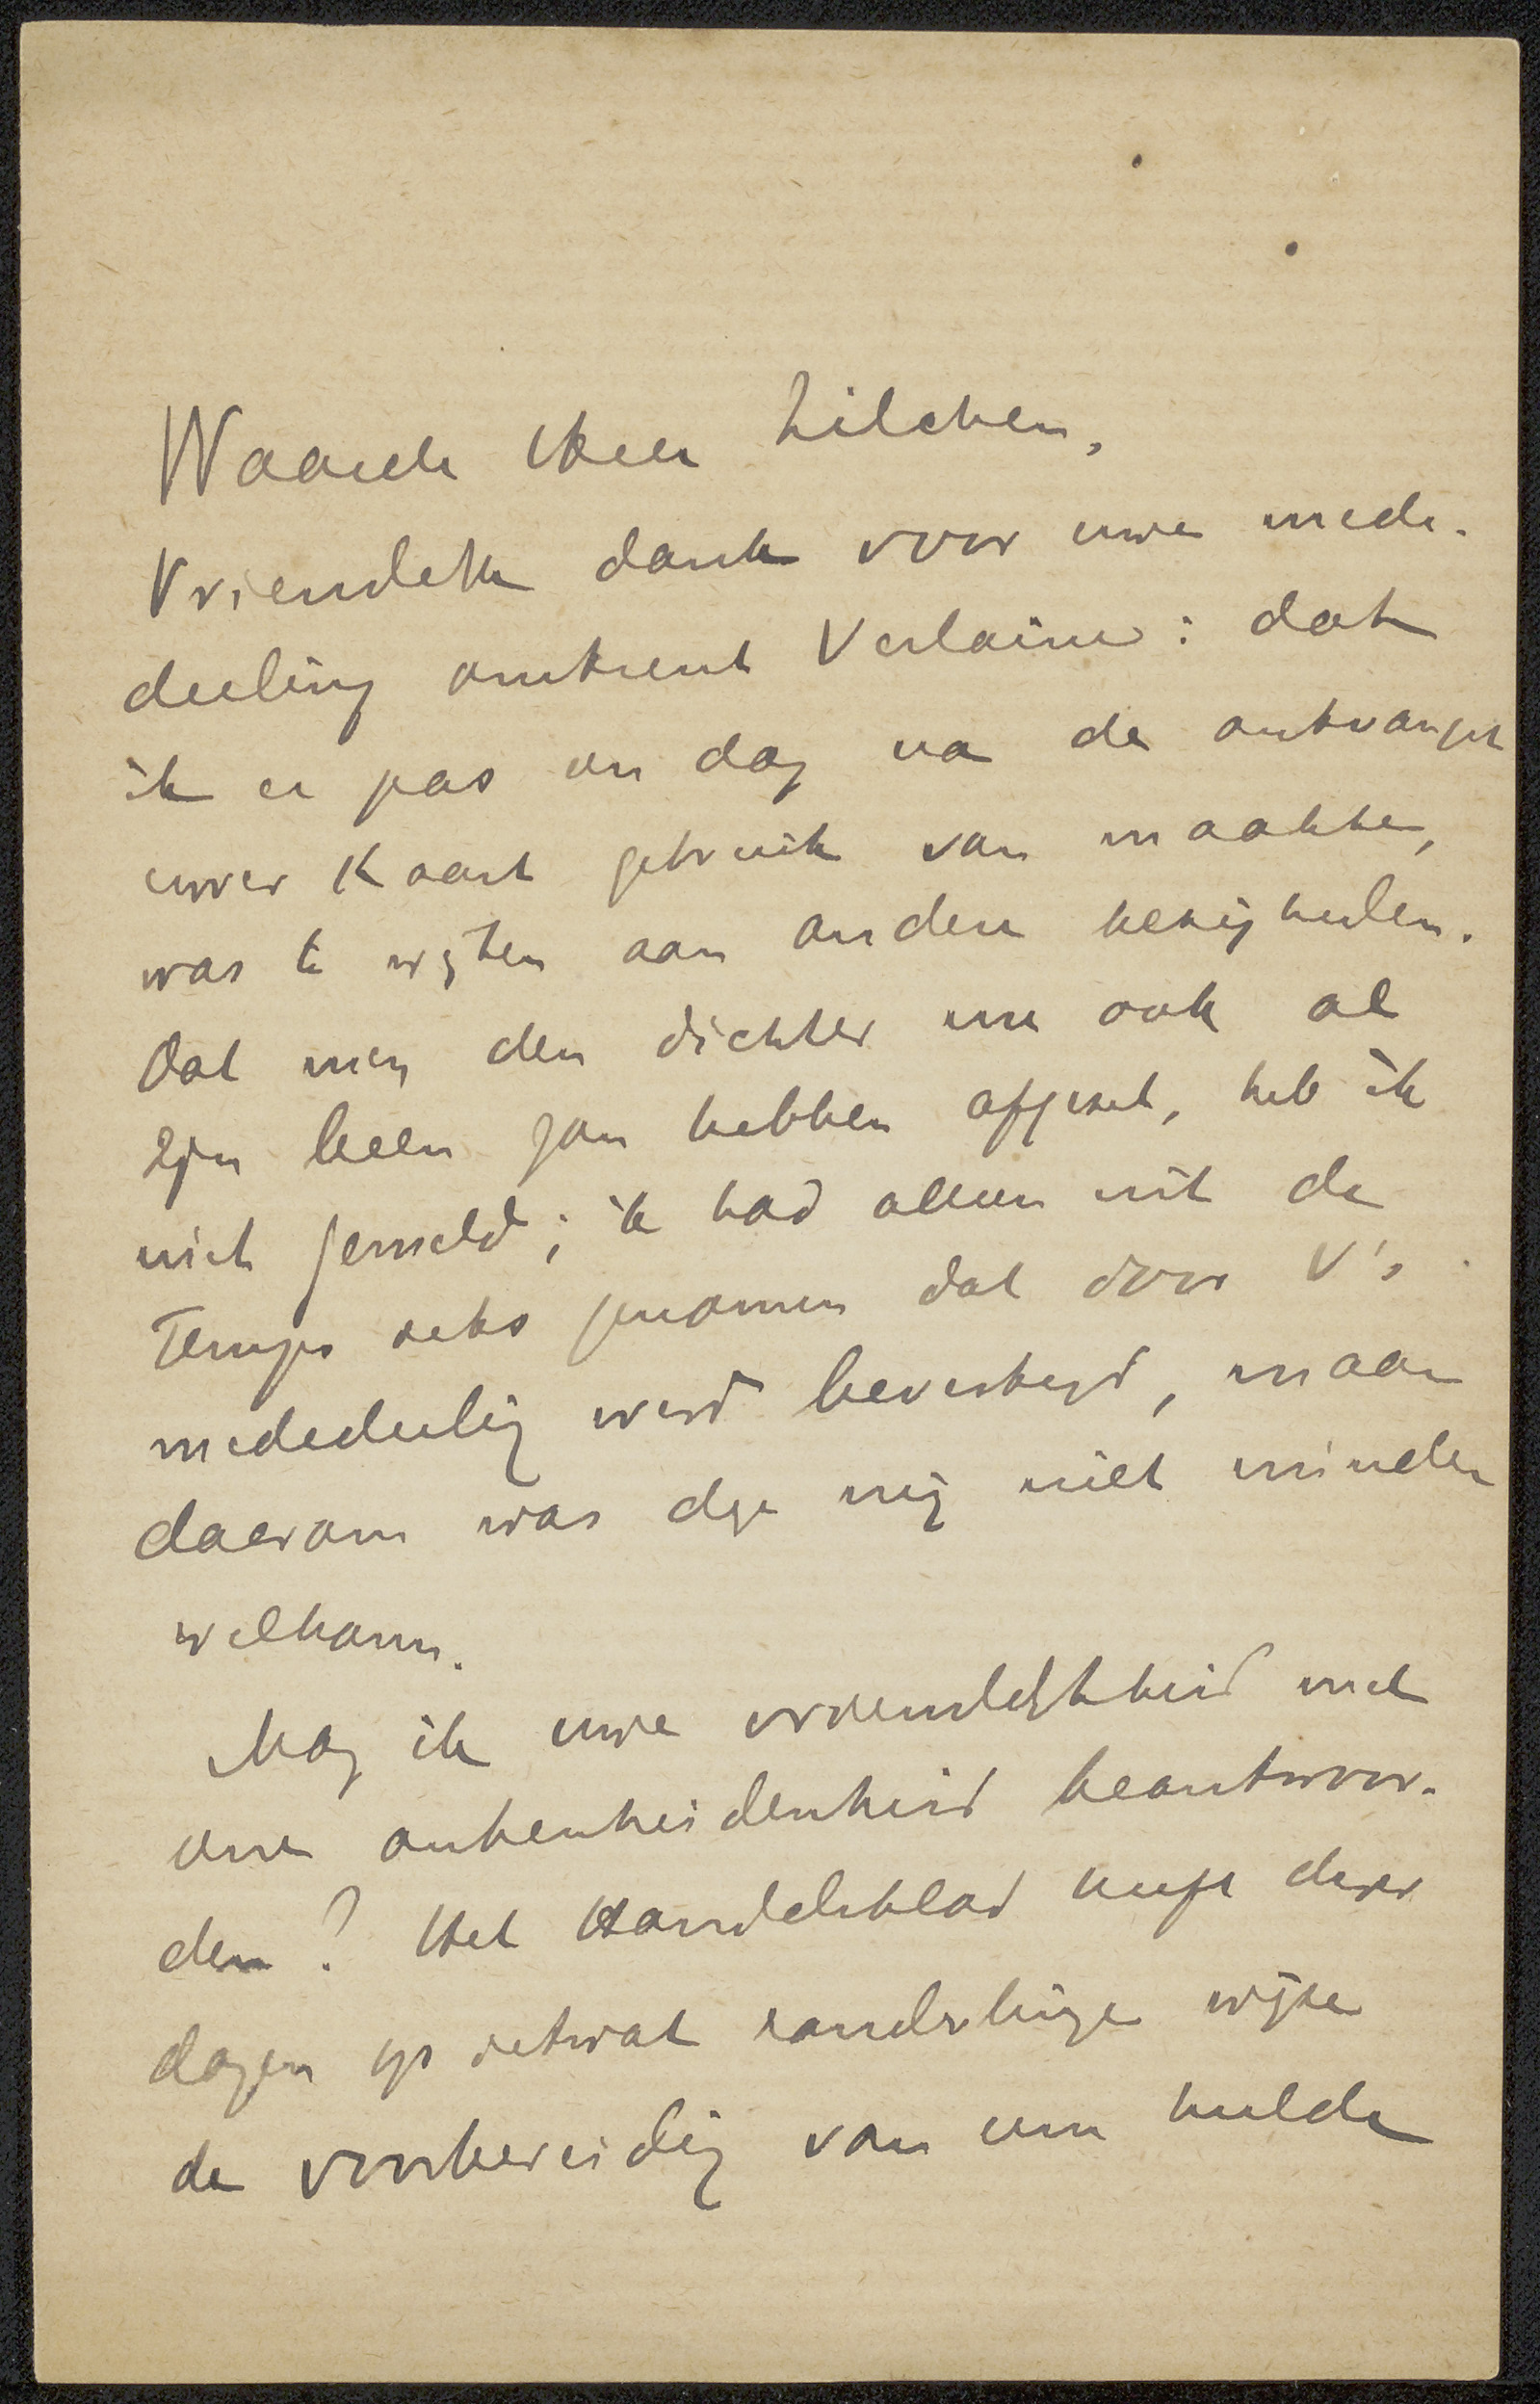 Waarde Heer Zilcken,
Vriendelijk dank voor uwe mede-
deeling omtrent Verlaine: dat
ik er pas een dag na de ontvangst
uwer Kaart gebruik van maakte,
was te wijten aan andere bezigheden.
Dat men den dichter nu ook al
zijn been zou hebben afgezet, heb ik
niet gemeld; ik had alleen uit de
Temps iets genomen dat door V's
mededeeling werd bevestigd, maar
daarom was deze mij niet minder
welkom.
Mag ik uwe vriendelijkheid met
eene onbescheidenheid beantwoor-
den? Het Handelsblad heeft dezer
dagen op ietwat zonderlinge wijze
de voorbereiding van een hulde